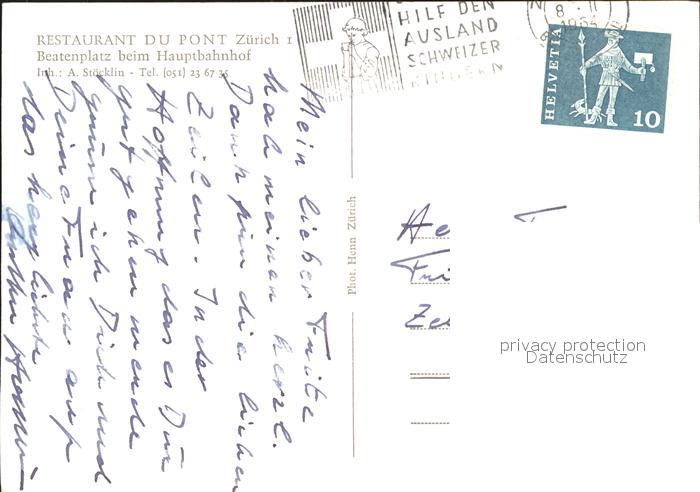 RESTAURANT DU PONT Zürich 1
Beatenplatz beim Hauptbahnhof
Inh.: A. Stöcklin - Tel. (051) 23 67 35
HILF DEN
AUSLAND
SCHWEIZER
KINDERN
8 - II
HELVETIA
10
Mein lieber Fritz
hab meinen herzl.
Dank für die lieben
Zeilen. In der
Hoffnung das es Dir
gut gehen werde
grüsse ich Dich und
Deine Frau auf
das herzlichste
Phot. Henn Zürich
He
Fri
Ze
privacy protection
Datenschutz